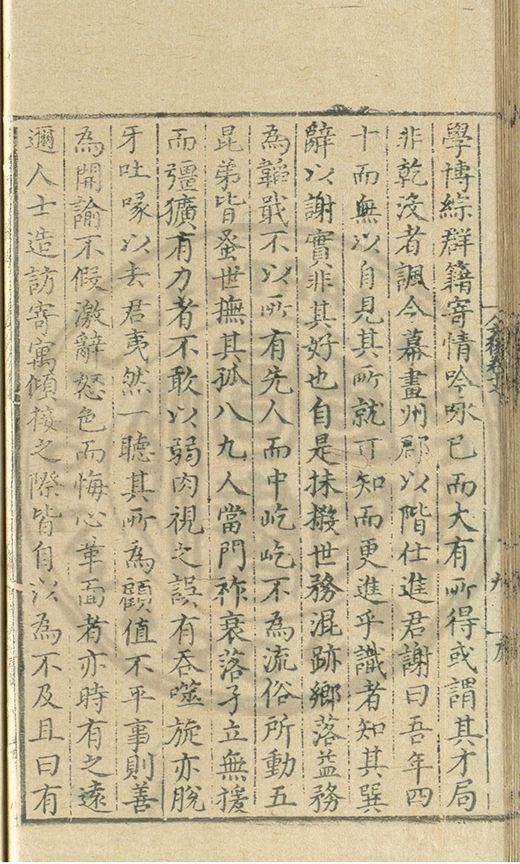 學博綜群籍寄情吟咏已而大有所得或謂其才局
非乾没者諷今幕畫州郡以階仕進君謝曰吾年四
十而無以自見其所就可知而更進乎識者知其巽
辭以謝實非其好也自是抹摋世務混跡鄉落益務
為韜戢不以所有先人而中屹屹不為流俗所動五
昆弟皆蚤世撫其孤八九人當門祚衰落孑立無援
而彊獷有力者不敢以弱肉視之誤有吞噬旋亦脫
牙吐喙以去君夷然一聽其所為顧值不平事則善
為開諭不假激辭怒色而悔心革面者亦時有之遠
邇人士造訪寄寓傾接之際皆自以為不及且曰有